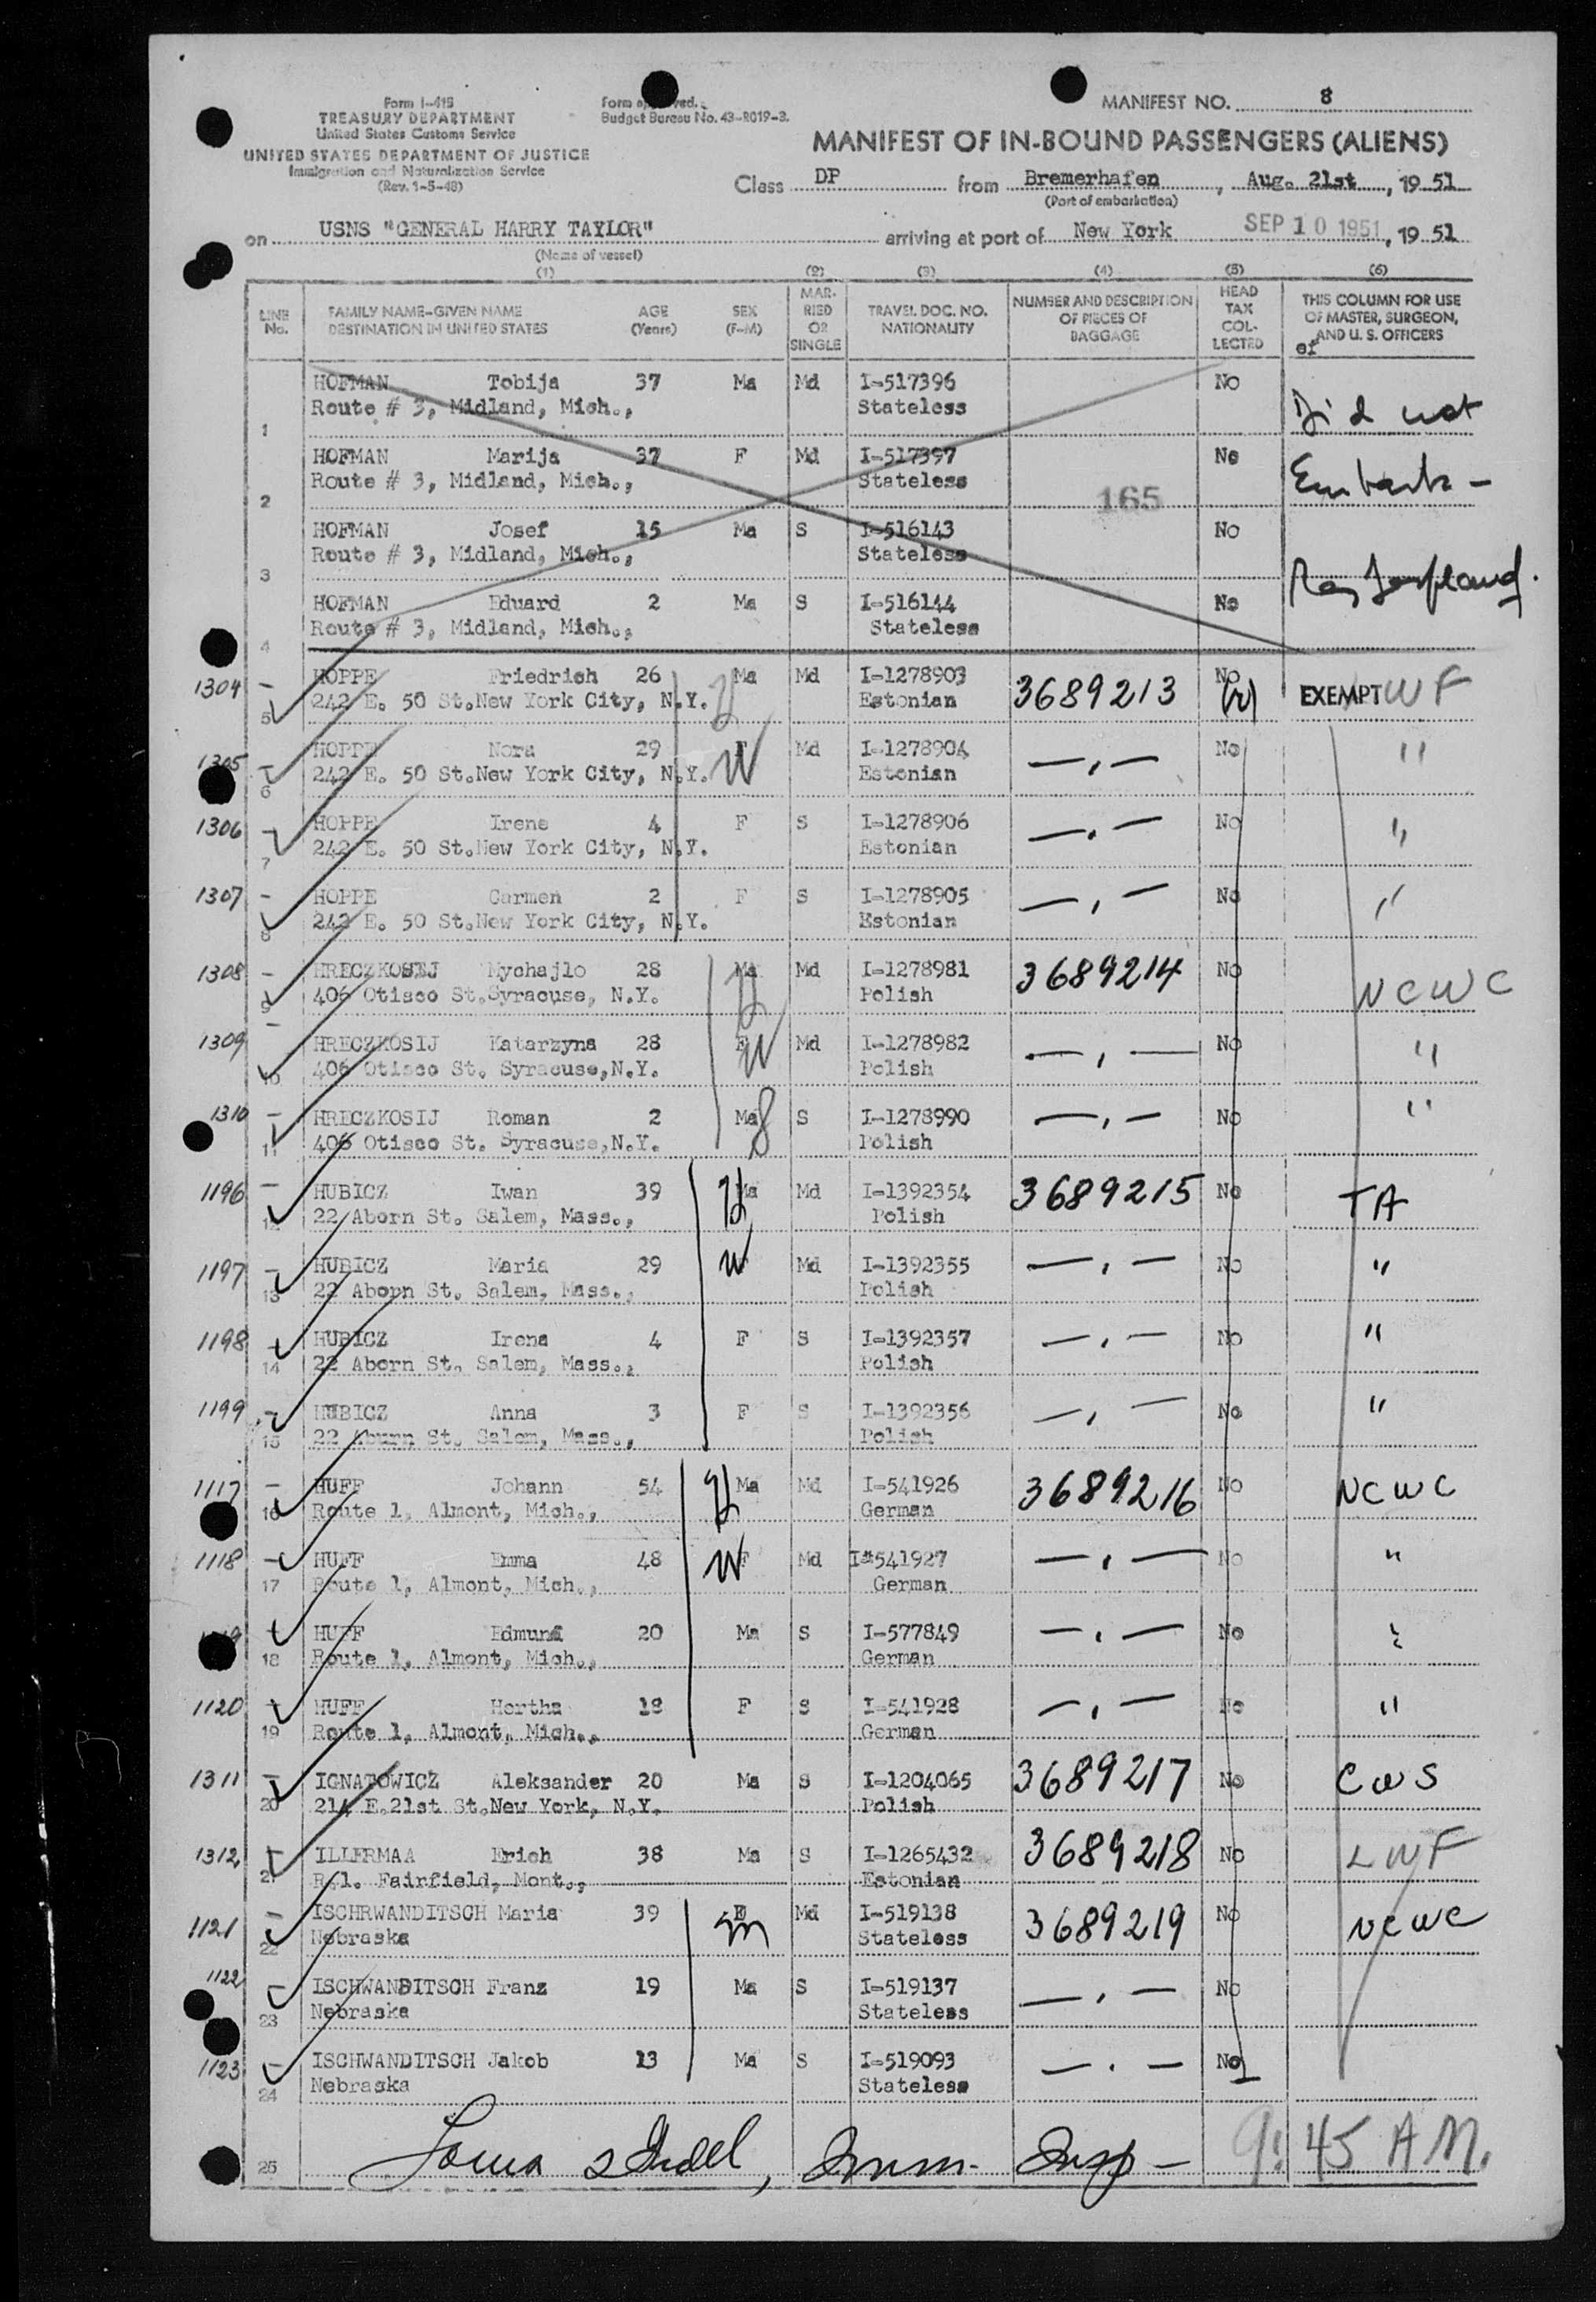 Form I-415
TREASURY DEPARTMENT
United States Customs Service
UNITED STATES DEPARTMENT OF JUSTICE
Immigration and Naturalization Service
(Rev. 1-5-48)
Form approved.
Budget Bureau No. 43-R019-3.
MANIFEST NO. 8
MANIFEST OF IN-BOUND PASSENGERS (ALIENS)
Class DP from Bremerhafen, Aug. 21st, 19 51
(Port of embarkation)
on USNS "GENERAL HARRY TAYLOR" arriving at port of New York SEP 10 1951, 19 51
(Name of vessel)
(1) (2) (3) (4) (5) (6)
LINE No. FAMILY NAME-GIVEN NAME DESTINATION IN UNITED STATES AGE (Years) SEX (F-M) MAR-RIED OR SINGLE TRAVEL DOC. NO. NATIONALITY NUMBER AND DESCRIPTION OF PIECES OF BAGGAGE HEAD TAX COL-LECTED THIS COLUMN FOR USE OF MASTER, SURGEON, AND U. S. OFFICERS
HOFMAN Tobija 37 Ma Md I-517396 No
1 Route # 3, Midland, Mich., Stateless Did not
HOFMAN Marija 37 F Md I-517397 No
2 Route # 3, Midland, Mich., Stateless 165 Embark -
HOFMAN Josef 15 Ma S I-516143 No
3 Route # 3, Midland, Mich., Stateless
HOFMAN Eduard 2 Ma S I-516144 No
4 Route # 3, Midland, Mich., Stateless
1304 HOPPE Friedrich 26 Ma Md I-1278903 3689213 No EXEMPT WF
5 242 E. 50 St.New York City, N.Y. H Estonian
1305 HOPPE Nora 29 F Md I-1278904 — . — No "
6 242 E. 50 St.New York City, N.Y. W Estonian
1306 HOPPE Irene 4 F S I-1278906 — . — No "
7 242 E. 50 St.New York City, N.Y. Estonian
1307 HOPPE Carmen 2 F S I-1278905 — . — No "
8 242 E. 50 St.New York City, N.Y. Estonian
1308 HRECZKOSIJ Mychajlo 28 Ma Md I-1278981 3689214 No NCWC
9 406 Otisco St.Syracuse, N.Y. H Polish
1309 HRECZKOSIJ Katarzyna 28 F Md I-1278982 — . — No "
10 406 Otisco St. Syracuse,N.Y. W Polish
1310 HRECZKOSIJ Roman 2 Ma S I-1278990 — . — No "
11 406 Otisco St. Syracuse,N.Y. Polish
1196 HUBICZ Iwan 39 H Ma Md I-1392354 3689215 No TA
12 22 Aborn St. Salem, Mass., Polish
1197 HUBICZ Maria 29 W Md I-1392355 — . — No "
13 22 Aborn St. Salem, Mass., Polish
1198 HUBICZ Irena 4 F S I-1392357 — . — No "
14 22 Aborn St. Salem, Mass., Polish
1199 HUBICZ Anna 3 F S I-1392356 — . — No "
15 22 Aburn St. Salem, Mass., Polish
1117 HUFF Johann 54 H Ma Md I-541926 3689216 No NCWC
16 Route 1, Almont, Mich., German
1118 HUFF Emma 48 W F Md I-541927 — . — No "
17 Route 1, Almont, Mich., German
HUFF Edmund 20 Ma S I-577849 — . — No "
18 Route 1, Almont, Mich., German
1120 HUFF Hertha 18 F S I-541928 — . — No "
19 Route 1, Almont, Mich., German
1311 IGNATOWICZ Aleksander 20 Ma S I-1204065 3689217 No CWS
20 214 E.21st St.New York, N.Y. Polish
1312 ILLERMAA Erich 38 Ma S I-1265432 3689218 No LWF
21 R.1. Fairfield, Mont., Estonian
1121 ISCHRWANDITSCH Maria 39 F Md I-519138 3689219 No NCWC
22 Nebraska m Stateless
1122 ISCHWANDITSCH Franz 19 Ma S I-519137 — . — No
23 Nebraska Stateless
1123 ISCHWANDITSCH Jakob 13 Ma S I-519093 — . — No
24 Nebraska Stateless
25 Imm. Insp - 9:45 A.M.